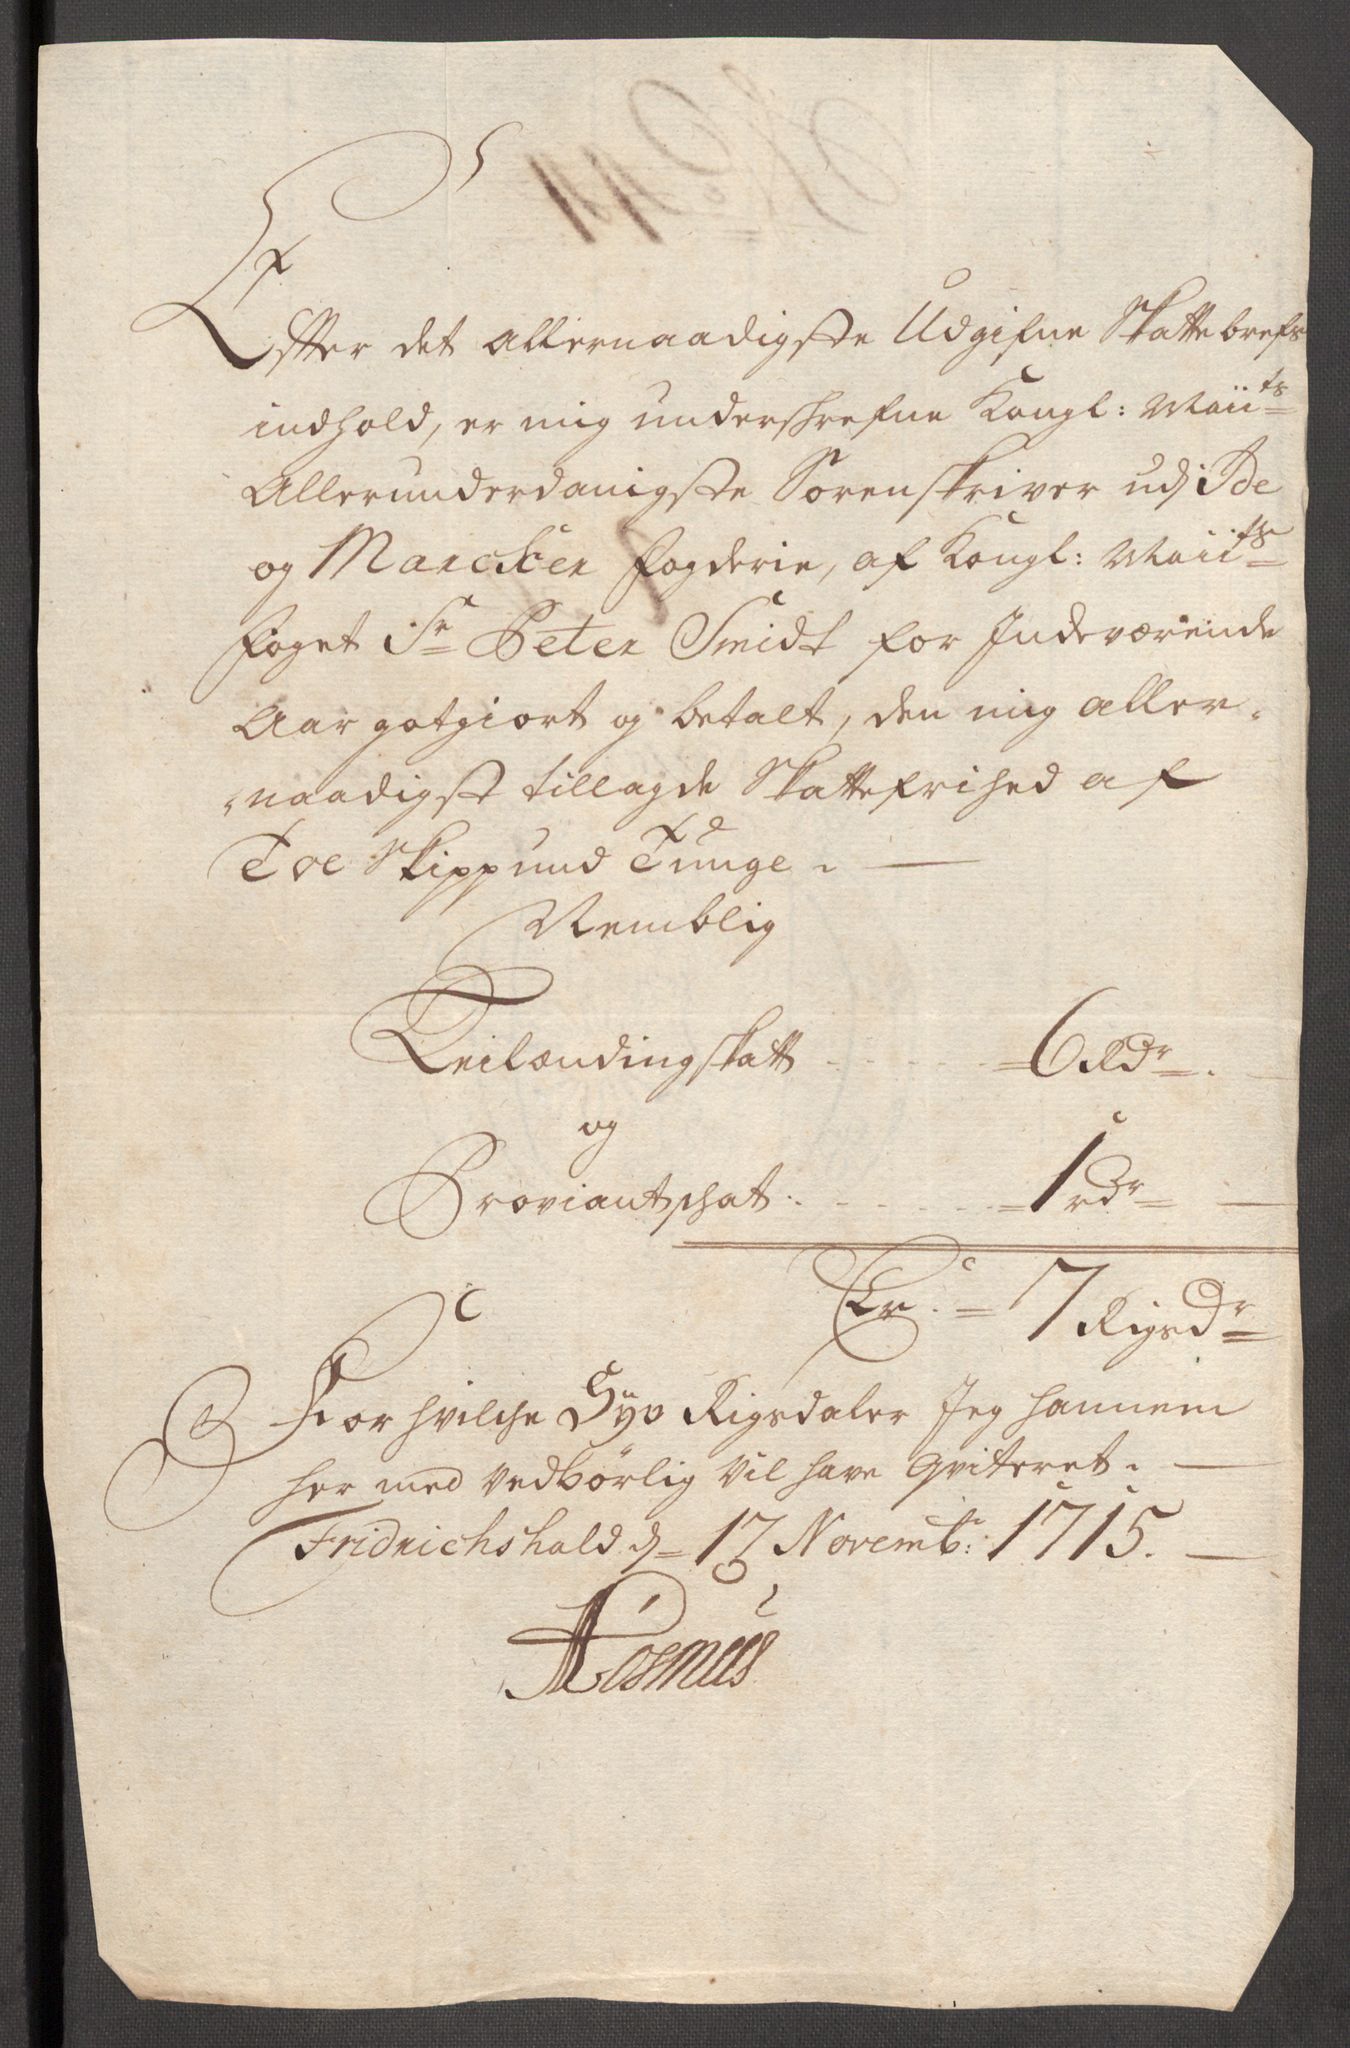 Effter det allernaadigste Udgifne Skattebrefs
indhold, er mig underschrefne Kongl: Maiits
Allerunderdanigste Sorenskriver udj Ide
og Marcker fogderie, af Kongl: Maiits
foget Sr Peter Smidt for Indeværende
Aar gotgiort og betalt, den mig aller-
naadigst tillagde Skattefrihed af
Toe Skippund Tunge.
Nemblig
Leilændingskatt 6 Rdr
og
Proviantschat. 1 rdr
Er. 7 Rigsdr
For hvilche Syv Rigsdaler Jeg hannem
her med vedbörlig vil have qviteret.
Fridrichshald d 17 Novemb: 1715.